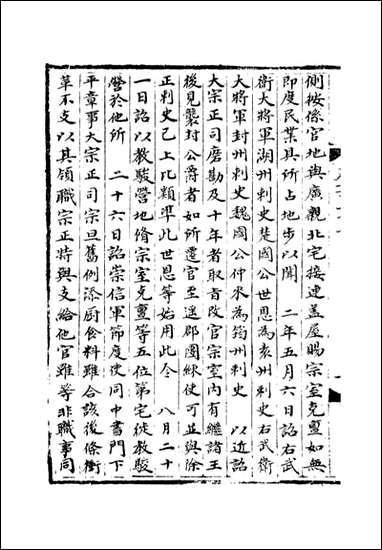 側按係官地與廣親北宅接連蓋屋賜宗室克亶如無
即度民業具所占地步以聞　二年五月六日詔右武
衛大將軍湖州刺史楚國公世恩為亥州刺史右武衛
大將軍封州刺史魏國公仲來為筠州刺史　以近詔
大宗正司磨勘及十年者取旨改官宗室內有繼諸王
後見襲封公爵者如所遷官至遥郡團練使可並與除
正刺史已上比類準此世恩等始用此令　八月二十
一日詔以教駿營地脩宗室克亶等五位第宅徙教駿
營於他所　二十六日詔崇信軍節度使同中書門下
平章事大宗正司宗旦舊例添厨食料雖合該後條衝
革不支以其領職宗正特與支給他官雖等非職事同